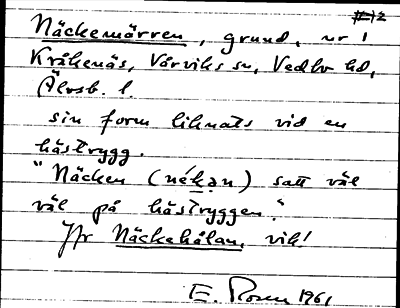 Näckemärren, grund, nr 1
Kråkenäs, Vårviks sn, Vedbo hd,
Älvsb. l.
sin form liknats vid en
hästrygg.
"Näcken (nékan) satt väl
väl på hästryggen."
Jfr Näckehålan, vik!
E. Rosen 1961